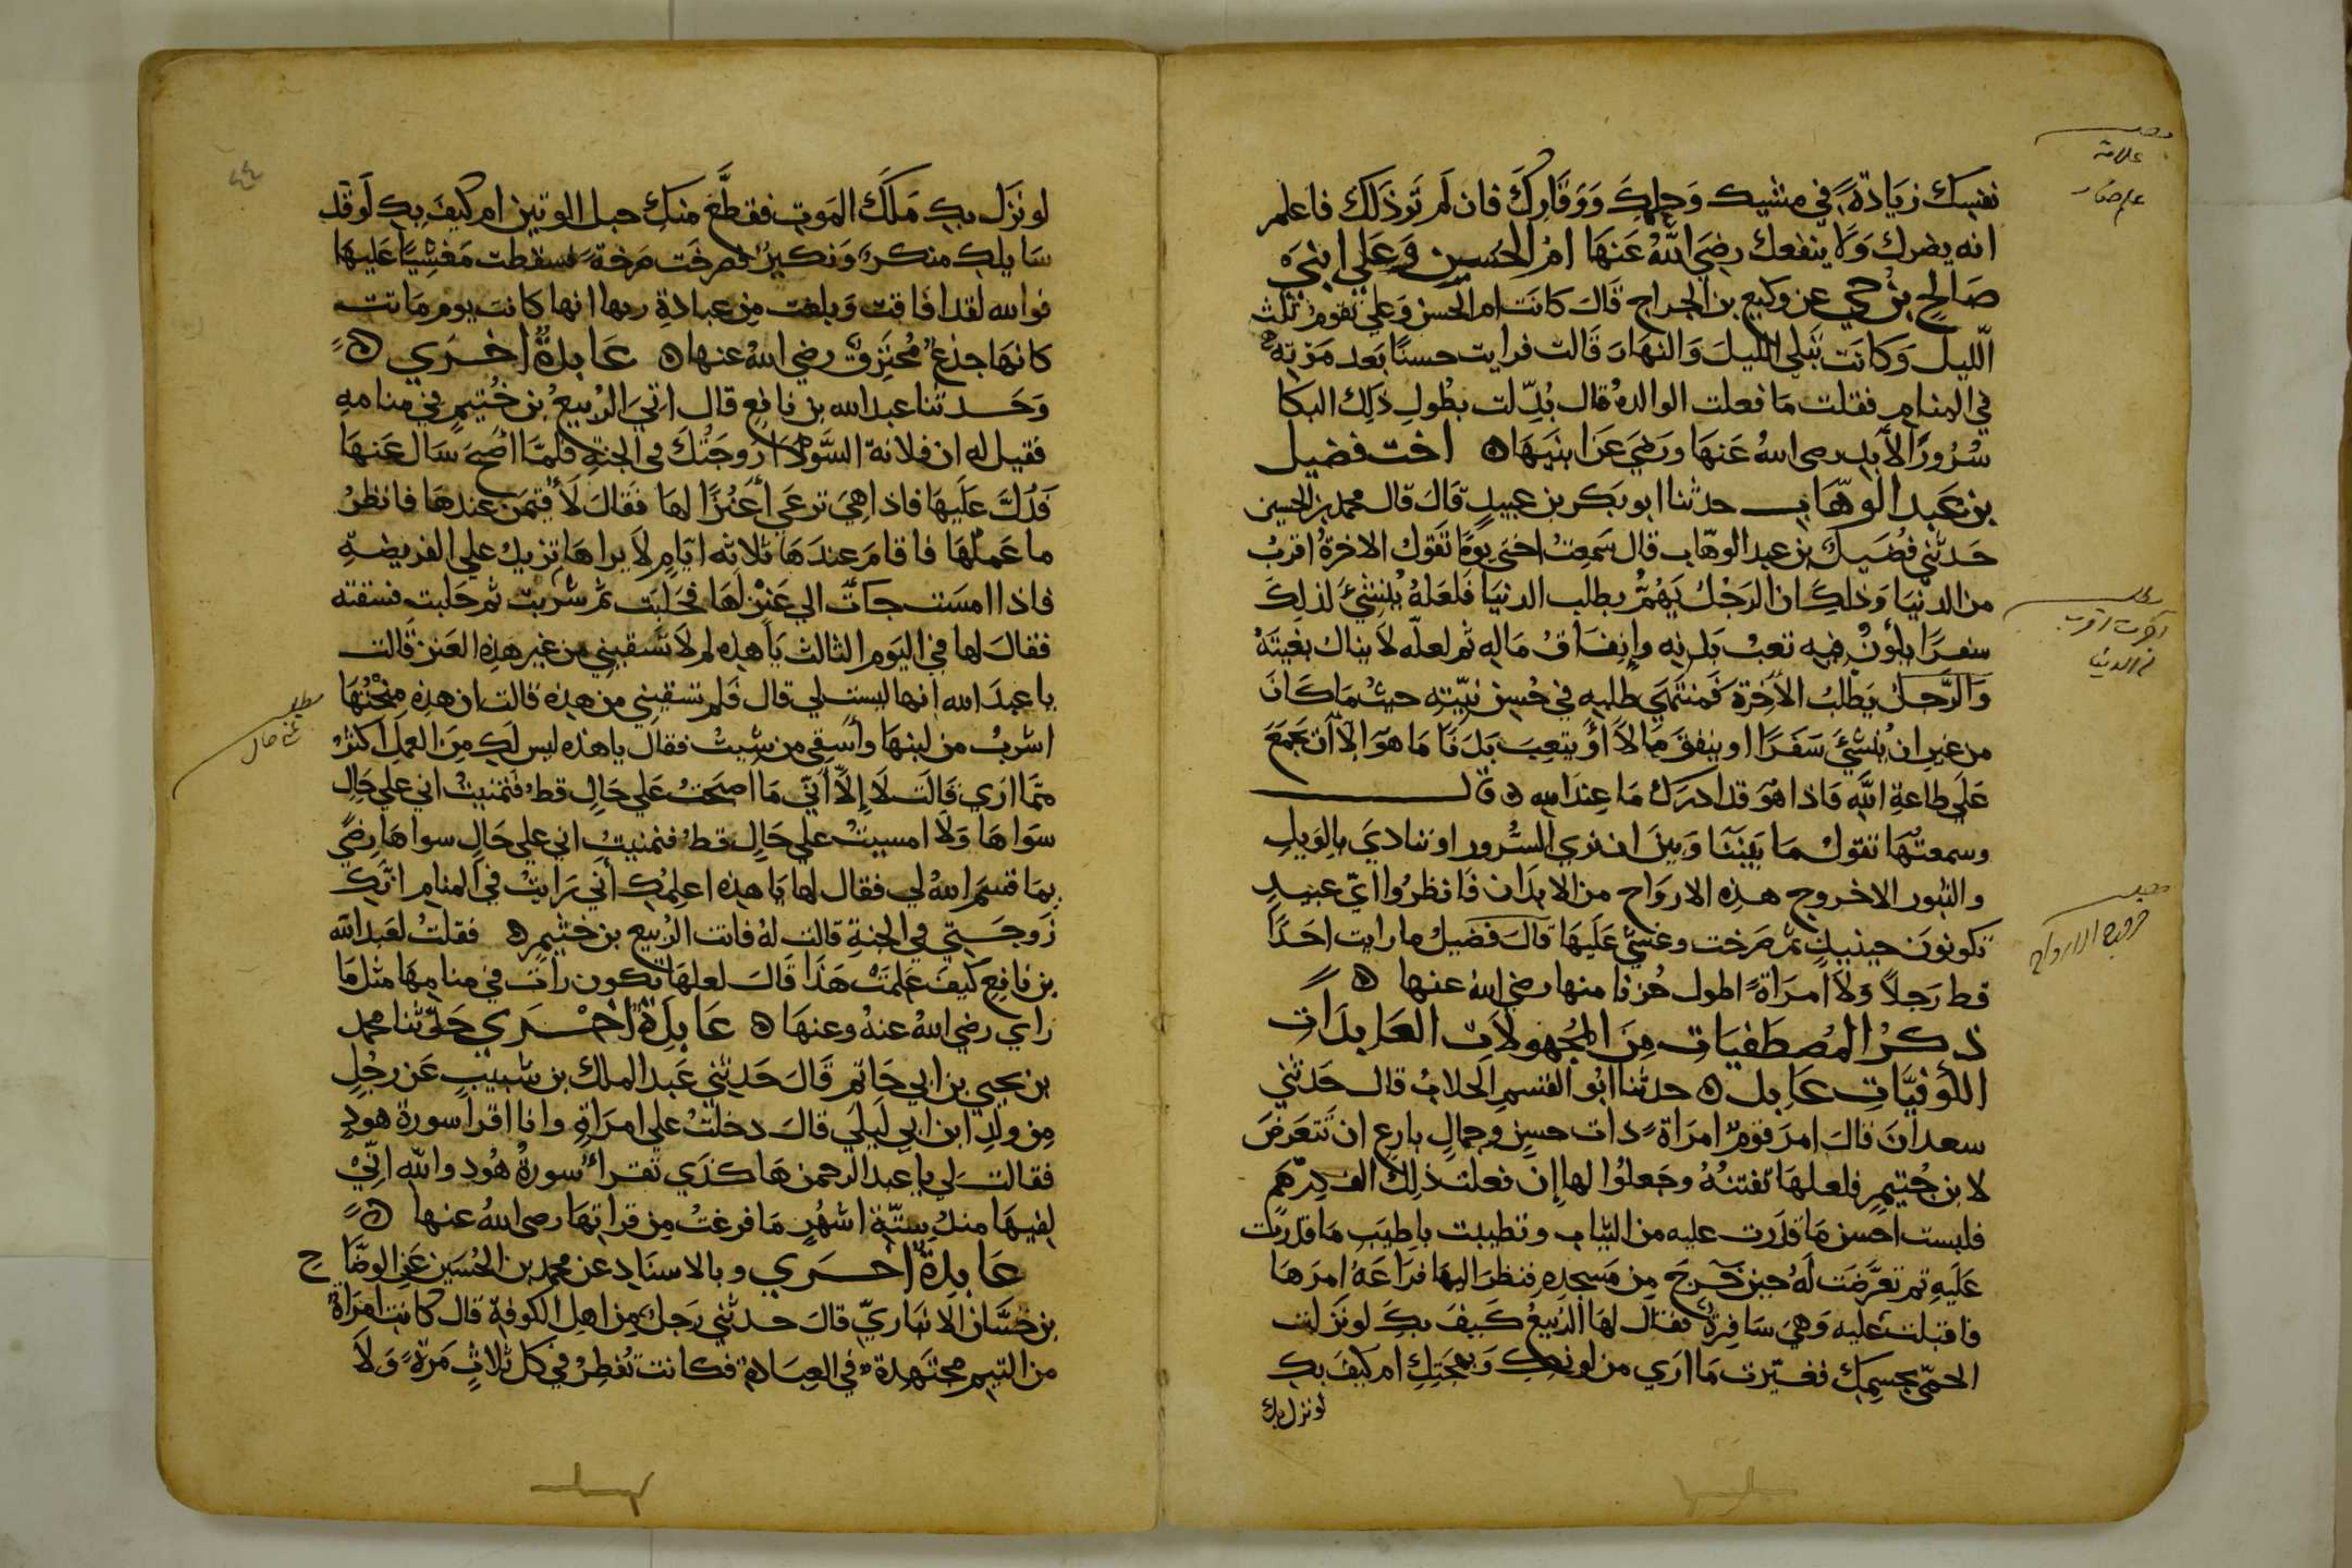 نفسك زيَادةً في مشيك وَحِلمِكَ وَوَقَارِكَ فان لَم تَر ذَلكَ فاعلم
انه يضرك وَلا ينفعك رضِيَ اللّهُ عَنهَا امُ الحُسَينِ وَعَلي ابنَيْ
صَالح بن حي عن وكيع بن الجراح قَالَ كانَت ام الحسن وَعلي تقومُ ثلث
الّليل وَكانَت تبكي الليلَ وَالنهَارَ قَالت فرايت حسنًا بَعد مَوتِه
في المنامِ فقلت مَا فعلت الوالدهُ قال بُدّلت بطُولِ ذَلِك البكا
سُرُورًا الأبدِ رضى اللهُ عَنهَا ورَضيَ عَن ابنَيهَا ه اخت فضيل
بن عَبد الوهّابِ حدثنا ابو بَكر بن عبيدٍ قَالَ قال محمد بن الحسين
حَدثني فضَيلُ بن عبد الوهّاب قال سَمِعتُ اختى يومًا تَقول الاخرةُ اقربُ
من الدنيَا وَذلكَ ان الرَجُلَ يَهُمُّ بطلبِ الدنيَا فَلعَلهُ يُنشئَ لذلِكَ
سفرًا يكونُ فيه تعبُ بَدَنِه وإنفَاقُ مَالِه ثم لعلّه لا ينال بغيَتَهُ
وَالرَّجلُ يَطلبُ الآخِرةَ فَمنتهَي طلبِه في حُسنِ نيّتِه حيثُ مَا كَانَ
من غيرِ ان يُنشئَ سَفَرًا او ينفقَ مَالاً أوْ يتعِبَ بَدَنًا مَا هوَ الاّ أن يجمَعَ
عَلي طاعةِ اللّهِ فَاذا هوَ قد ادرَكَ مَا عِندَ اللهِ ه قال
وسمعتُهَا تقولُ مَا بَينَنَا وَبينَ ان نري السُرور او ننادي بالوَيلِ
والثبور الا خروج هذِه الاروَاح من الابدَان فَانظرُوا ايّ عبيدٍ
تكونونَ حينيذٍ ثم صَرخت وغشيَ عَلَيهَا قَالَ فضَيلُ ما رايت احَدًا
قط رَجلاً وَلا امرَاةً اطول حُزنا منها رضي الله عنها ه
ذكرُ المُصطَفيَاتِ مِنَ المجُهولاتِ العَابدَات
الكوفيَّاتِ عَابده ه حدثنا ابُو القسمِ الحلابُ قال حَدثني
سعدانَ قالَ امرَ قومٌ امرَاةً ذات حسنٍ وجمالٍ بارِع ان تَتعَرضَ
لابن خثيمٍ فلعلهَا تفتنُهُ وجَعلُوا لها إن فعلت ذلِك الف دِرهَم
فلبست احسن مَا قدَرت عليه من الثيابِ وتطيبت باطيَبِ مَا قدرت
عَلَيهِ ثم تعرَّضَت لَهُ حين خَرجَ مِن مَسجدِهِ فنظرَ اليهَا فرَاعَهُ امرُهَا
فاقبلت عليه وَهيَ سَافِرة فقال لهَا الربيعُ كَيفَ بكِ لو نَزَلت
الحمّى بجسمِك فغيّرت مَا ارَي من لونِكِ وَبهجَتِكِ ام كَيفَ بكِ
لو نزل بك
علامة
آخرت اقرب
من الدنيا
خروج الارواح
لو نزَل بكِ مَلَكَ المَوتِ فقطَّعَ منكِ حبل الوتينِ ام كيفَ بكِ لَو قد
سَايلكِ منكرٌ وَنكيرٌ فصرخَت صَرخةً فسقطت مَغشِيًا عَليهَا
فوالله لقد افَاقت وَبلغت مِن عبادةِ ربها انها كانَت يوم مَاتت
كانهَا جذعٌ مُحتَرِقٌ رضي اللهُ عنها ه عَابدةٌ اخرَي ه
وَحَدثنا عبد الله بن نافعٍ قال اتيَ الربيعُ بن خُثيمٍ في منامهِ
فقيل له ان فلانة السَّودَا زَوجَتُكَ في الجنةِ فلمّا اصبحَ سَال عَنهَا
فَدُلَّ عَلَيهَا فاذا هِيَ ترعَي أعنُزًا لهَا فقالَ لَأقيمَن عندهَا فانظرُ
ما عَملُهَا فاقامَ عندَهَا ثلاثه ايّامٍ لاَ يراها تزيدُ علي الفريضةِ
فاذا امسَت جَاتْ الي عَنزٍ لهَا فحَلبَت ثم شربت ثم حَلبت فسَقته
فقالَ لها في اليَوم الثالث يَا هذِه لم لاَ تسقيني من غير هَذِه العَنز قالت
يا عبدَ الله انها ليست لي قال فَلم تسقيني من هذِه قالت ان هذِه مُنِحْتُهَا
اشربُ من لبنهَا وأسقِي من شِيتُ فقالَ يا هَذه ليس لَكِ مِنَ العَمل اكثرُ
مّمَا ارَي قَالَت لاَ إلاّ أنّي مَا اصبحتُ عَلي حَالٍ قطُ فتمنيتُ اني علي حَالٍ
سوَاهَا وَلا امسيتُ علي حَالٍ قط فتمنيتُ اني علي حَالٍ سواهَا رِضًي
بِمَا قسمَ اللهُ لي فقال لها يَا هذِه اعلِمُكِ أنّي رَايتُ في المنامِ انّكِ
زَوجَتي في الجنةِ قالت لهُ فانت الربيع بن خثيمٍ ه فقلتُ لعَبد الله
بن نافِعٍ كيفَ عَلمَتْ هَذَا قَالَ لعلهَا تكون رَات في منامِهَا مثلَ مَا
رَاي رضي اللهُ عنهُ وعنهَا ه عَابدَةٌ اخرَي حَدّثنا محمد
بن يحيي بن ابي حَاتم قَالَ حَدثني عَبد الملك بن شبيبٍ عَن رجُلٍ
مِن ولدِ ابن ابي لَيلَي قالَ دخلتُ علي امرَاةٍ وانا اقرا سورةَ هودٍ
فقالت لي يا عبد الرحمن هَاكذَي تقرأُ سُورةُ هُودٍ واللّهِ انّيْ
لفيهَا منذُ ستّة اشهُرٍ مَا فرغتُ مِن قراتهَا رضى اللهُ عنها ه
عَابدةٌ اخرَي وبالاسنَادِ عن محمد بن الحُسَين عَن الوضّاح
بن حسَّان الانبَاريّ قالَ حدثني رَجلٌ مِن اهلِ الكوفةِ قَال كانت امرَاةٌ
من التيم مجتهدةً في العبَادةِ فكانت تُفطِرُ في كل ثلاثٍ مَرةً وَلاَ